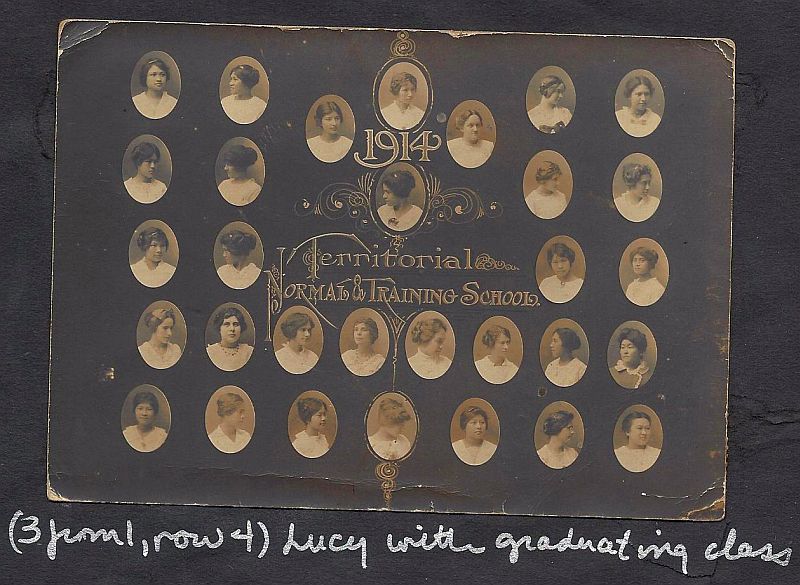 1914
Territorial
Normal & Training School.
(3 from l, row 4) Lucy with graduating class